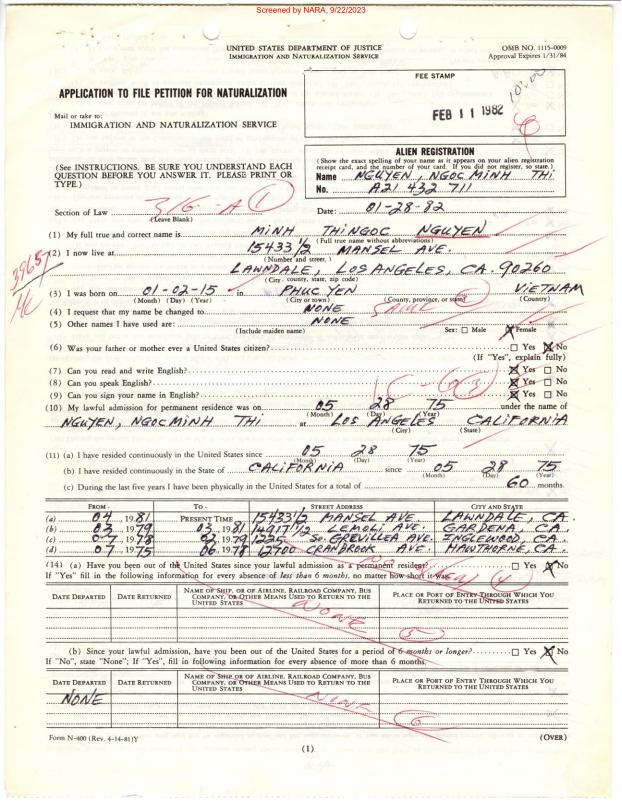 Screened by NARA, 9/22/2023
UNITED STATES DEPARTMENT OF JUSTICE
IMMIGRATION AND NATURALIZATION SERVICE
OMB NO. 1115-0009
Approval Expires 1/31/84
APPLICATION TO FILE PETITION FOR NATURALIZATION
FEE STAMP
FEB 11 1982
Mail or take to:
IMMIGRATION AND NATURALIZATION SERVICE
ALIEN REGISTRATION
(Show the exact spelling of your name as it appears on your alien registration
receipt card, and the number of your card. If you did not register, so state.)
Name NGUYEN, NGOC MINH THI
No. A21 432 711
(See INSTRUCTIONS. BE SURE YOU UNDERSTAND EACH
QUESTION BEFORE YOU ANSWER IT. PLEASE PRINT OR
TYPE.)
Section of Law 316-A 1
(Leave Blank)
Date: 01-28-82
(1) My full true and correct name is MINH THINGOC NGUYEN
(Full true name without abbreviations)
(2) I now live at 15433 1/2 MANSEL AVE.
(Number and street,)
LAWNDALE, LOS ANGELES, CA. 90260
(City county, state, zip code)
(3) I was born on 01-02-15 in PHUC YEN VIETNAM
(Month) (Day) (Year) (City or town) (County, province, or state) (Country)
(4) I request that my name be changed to NONE
(5) Other names I have used are: NONE
(Include maiden name) Sex: ☐ Male ☒ Female
(6) Was your father or mother ever a United States citizen? ☐ Yes ☒ No
(If "Yes", explain fully)
(7) Can you read and write English? ☒ Yes ☐ No
(8) Can you speak English? ☒ Yes ☐ No
(9) Can you sign your name in English? ☒ Yes ☐ No
(10) My lawful admission for permanent residence was on 05 28 75 under the name of
(Month) (Day) (Year)
NGUYEN, NGOC MINH THI at LOS ANGELES CALIFORNIA
(City) (State)
(11) (a) I have resided continuously in the United States since 05 28 75
(Month) (Day) (Year)
(b) I have resided continuously in the State of CALIFORNIA since 05 28 75
(Month) (Day) (Year)
(c) During the last five years I have been physically in the United States for a total of 60 months.
FROM - TO - STREET ADDRESS CITY AND STATE
(a) 04, 1981 PRESENT TIME 15433 1/2 MANSEL AVE LAWNDALE, CA.
(b) 03, 1979 03, 1981 14917 1/2 LEMOLI AVE. GARDENA, CA.
(c) 07, 1978 02, 1979 1225 SO. GREVILLEA AVE. INGLEWOOD, CA.
(d) 07, 1975 06, 1978 12700 CRANBROOK AVE. HAWTHORNE, CA.
(14) (a) Have you been out of the United States since your lawful admission as a permanent resident? ☐ Yes ☒ No
If "Yes" fill in the following information for every absence of less than 6 months, no matter how short it was.
DATE DEPARTED DATE RETURNED NAME OF SHIP, OR OF AIRLINE, RAILROAD COMPANY, BUS COMPANY, OR OTHER MEANS USED TO RETURN TO THE UNITED STATES PLACE OR PORT OF ENTRY THROUGH WHICH YOU RETURNED TO THE UNITED STATES
NONE
5
(b) Since your lawful admission, have you been out of the United States for a period of 6 months or longer? ☐ Yes ☒ No
If "No", state "None"; If "Yes", fill in following information for every absence of more than 6 months.
DATE DEPARTED DATE RETURNED NAME OF SHIP OR OF AIRLINE, RAILROAD COMPANY, BUS COMPANY, OR OTHER MEANS USED TO RETURN TO THE UNITED STATES PLACE OR PORT OF ENTRY THROUGH WHICH YOU RETURNED TO THE UNITED STATES
NONE NONE
6
Form N-400 (Rev. 4-14-81)Y
(OVER)
(1)